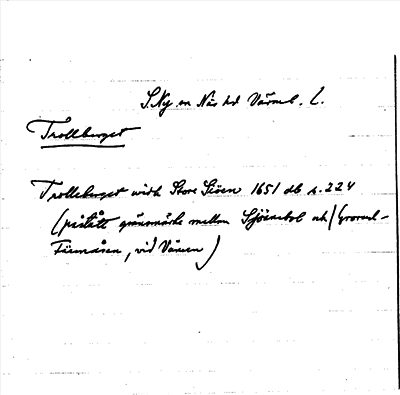 S. Ny sn När hd Värml. l.
Trollberget
Trolleberget widh Store Siöen 1651 db s. 224
(påstått gränsmärke mellan Sjöänbol och
vid Vänern)